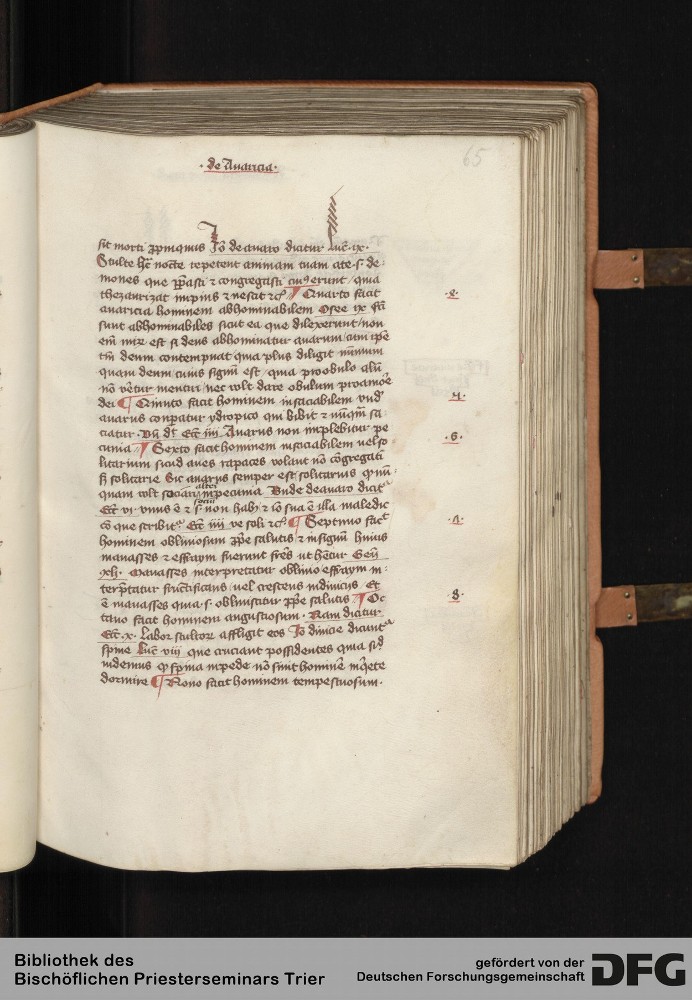 · de Auaricia ·
65
sit morti ꝓpinquus Jõ de auaro dicitur Luc̄ · ix ·
Stulte hac nocte repetent animam tuam a te · s · de⸗
mones que ꝑasti ⁊ congregasti cuiꝰ erunt / quia
thezaurizat impius ⁊ nescit ⁊cͣ ¶ Quarto facit
auaricia hominem abhominabilem Osee ix fc̄i
sunt abhominabiles sicut ea que dilexerunt / non
em̄ mir̄ est si deus abhominatur auarum / cum ip̄e
tm̄ deum contempnat quia plus diligit nūmum
quam deum cuius signū est / quia pro obulo
nō v̄etur mentiri / nec volt dare obulum pro amōe
dei ¶ Quinto facit hominem insaciabilem vnd̓
auarus conꝑatur ydropico qui bibit ⁊ nūqm̄ sa
ciatur · Vn̄ d̓r Ecc̄ iiii Auarus non implebitur pe
cunia ¶ Sexto facit hominem insociabilem vel so
litarium sicud aues rapaces volant nō cōgregati
s̄ solitarie Sic auarus semper est solitarius
quam volt sociari in pecunia Vnde de auaro dicit᷑
alteri
Ecc̄ vi · vnus ē ⁊ s · non hab ⁊ iō sua ē illa maledic
sociū
cō que scribit᷑ Ecc̄ iiii ve soli ⁊cͣ ¶ Septimo facͭ
hominem obliuiosum ꝓp̄e salutis ⁊ in signum huius
manasses ⁊ effraym fuerunt fr̄es vt hētur Gen̄
xli · Manasses interpretatur obliuio effraym in⸗
terp̄tatur fructificans / vel crescens in diuiciis Et
ē manasses quia · s · obliuiscitur ꝓp̄e salutis ¶ Oc
tauo facit hominem angustiosum · Nam dicitur
Ecc̄ · x · Labor stultorū affligit eos Jō diuicie dicunt᷑
spine Luc̄ viii que cruciant possidentes quia sic̄
videmus qͥ spina in pede nō sinit hominē quiete
dormire ¶ Nono facit hominem tempestuosum ·
· 4 ·
· 6 ·
· 8 ·
Bibliothek des
Bischöflichen Priesterseminars Trier
gefördert von der
Deutschen Forschungsgemeinschaft
DFG